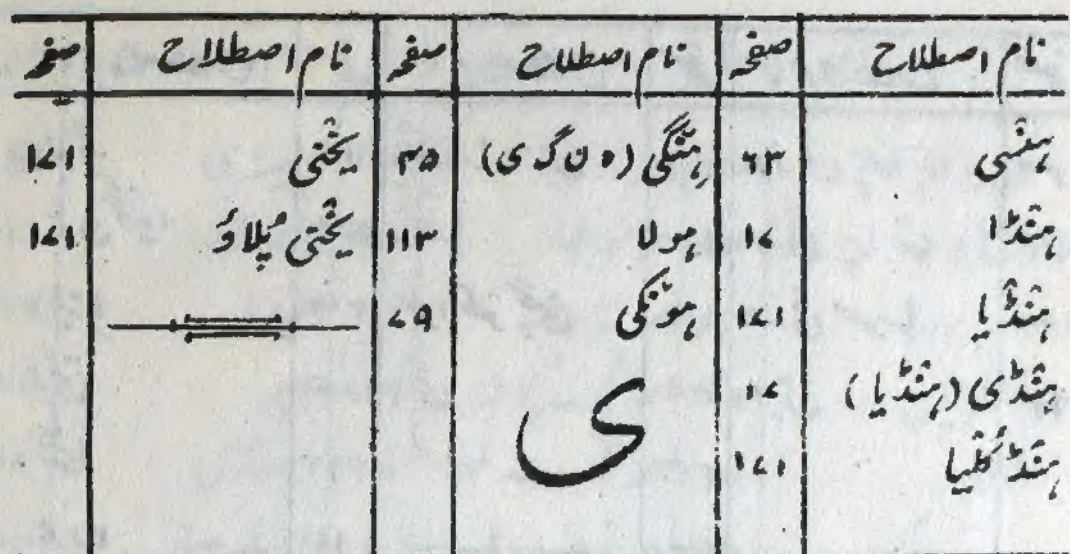 نام اصطلاح | صفحہ | نام اصطلاح | صفحہ | نام اصطلاح | صفحہ
ہنسی | ۶۳ | ہنگی (ہ ن گ ی) | ۳۵ | یخنی | ۱۷۱
ہنڈا | ۱۷ | ہولا | ۱۱۳ | یخنی پلاؤ | ۱۷۱
ہنڈیا | ۱۷۱ | ہونکی | ۷۹
ہنڈی (ہنڈیا) | ۱۷ | ی
ہنڈ کلیا | ۱۷۱